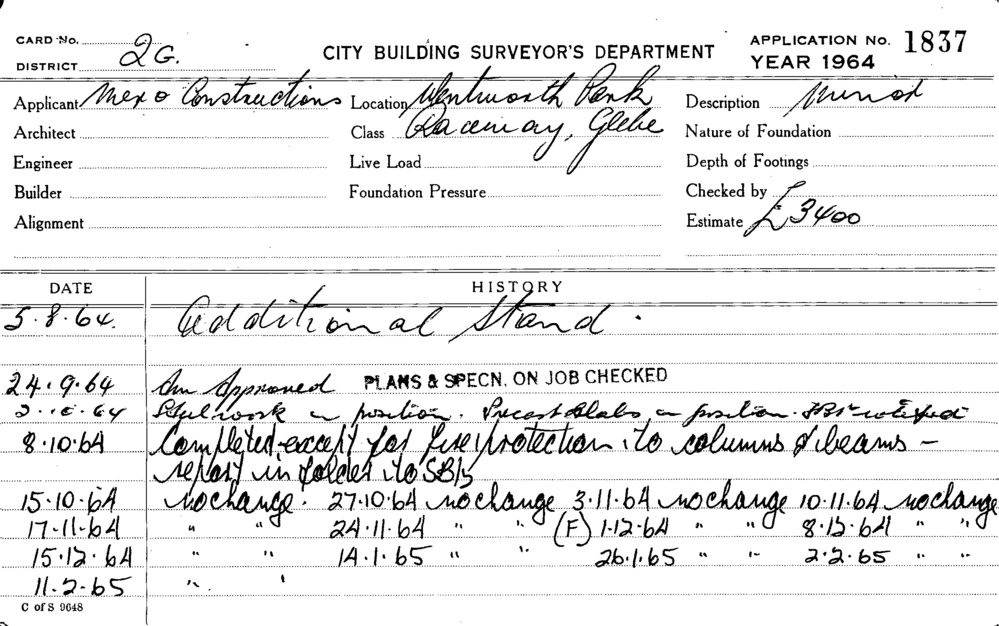 CARD No. CITY BUILDING SURVEYOR'S DEPARTMENT APPLICATION No. 1837
DISTRICT 2G. YEAR 1964
Applicant Mero Constructions Location Wentworth Park Description Minor
Architect Class Raceway, Glebe Nature of Foundation
Engineer Live Load Depth of Footings
Builder Foundation Pressure Checked by
Alignment Estimate £3400
DATE HISTORY
5.8.64. Additional Stand.
24.9.64 Approved PLANS & SPECN. ON JOB CHECKED
Steelwork in position. Precast Slabs in position.
8.10.64 Completed except for fire protection to columns & beams -
report in folder to SBI
15.10.64 no change. 27.10.64 no change 3.11.64 no change 10.11.64 no change
17.11.64 " " 24.11.64 " " (F) 1.12.64 " " 8.12.64 " "
15.12.64 " " 14.1.65 " " 26.1.65 " " 2.2.65 " "
11.2.65 " "
C of S 9648